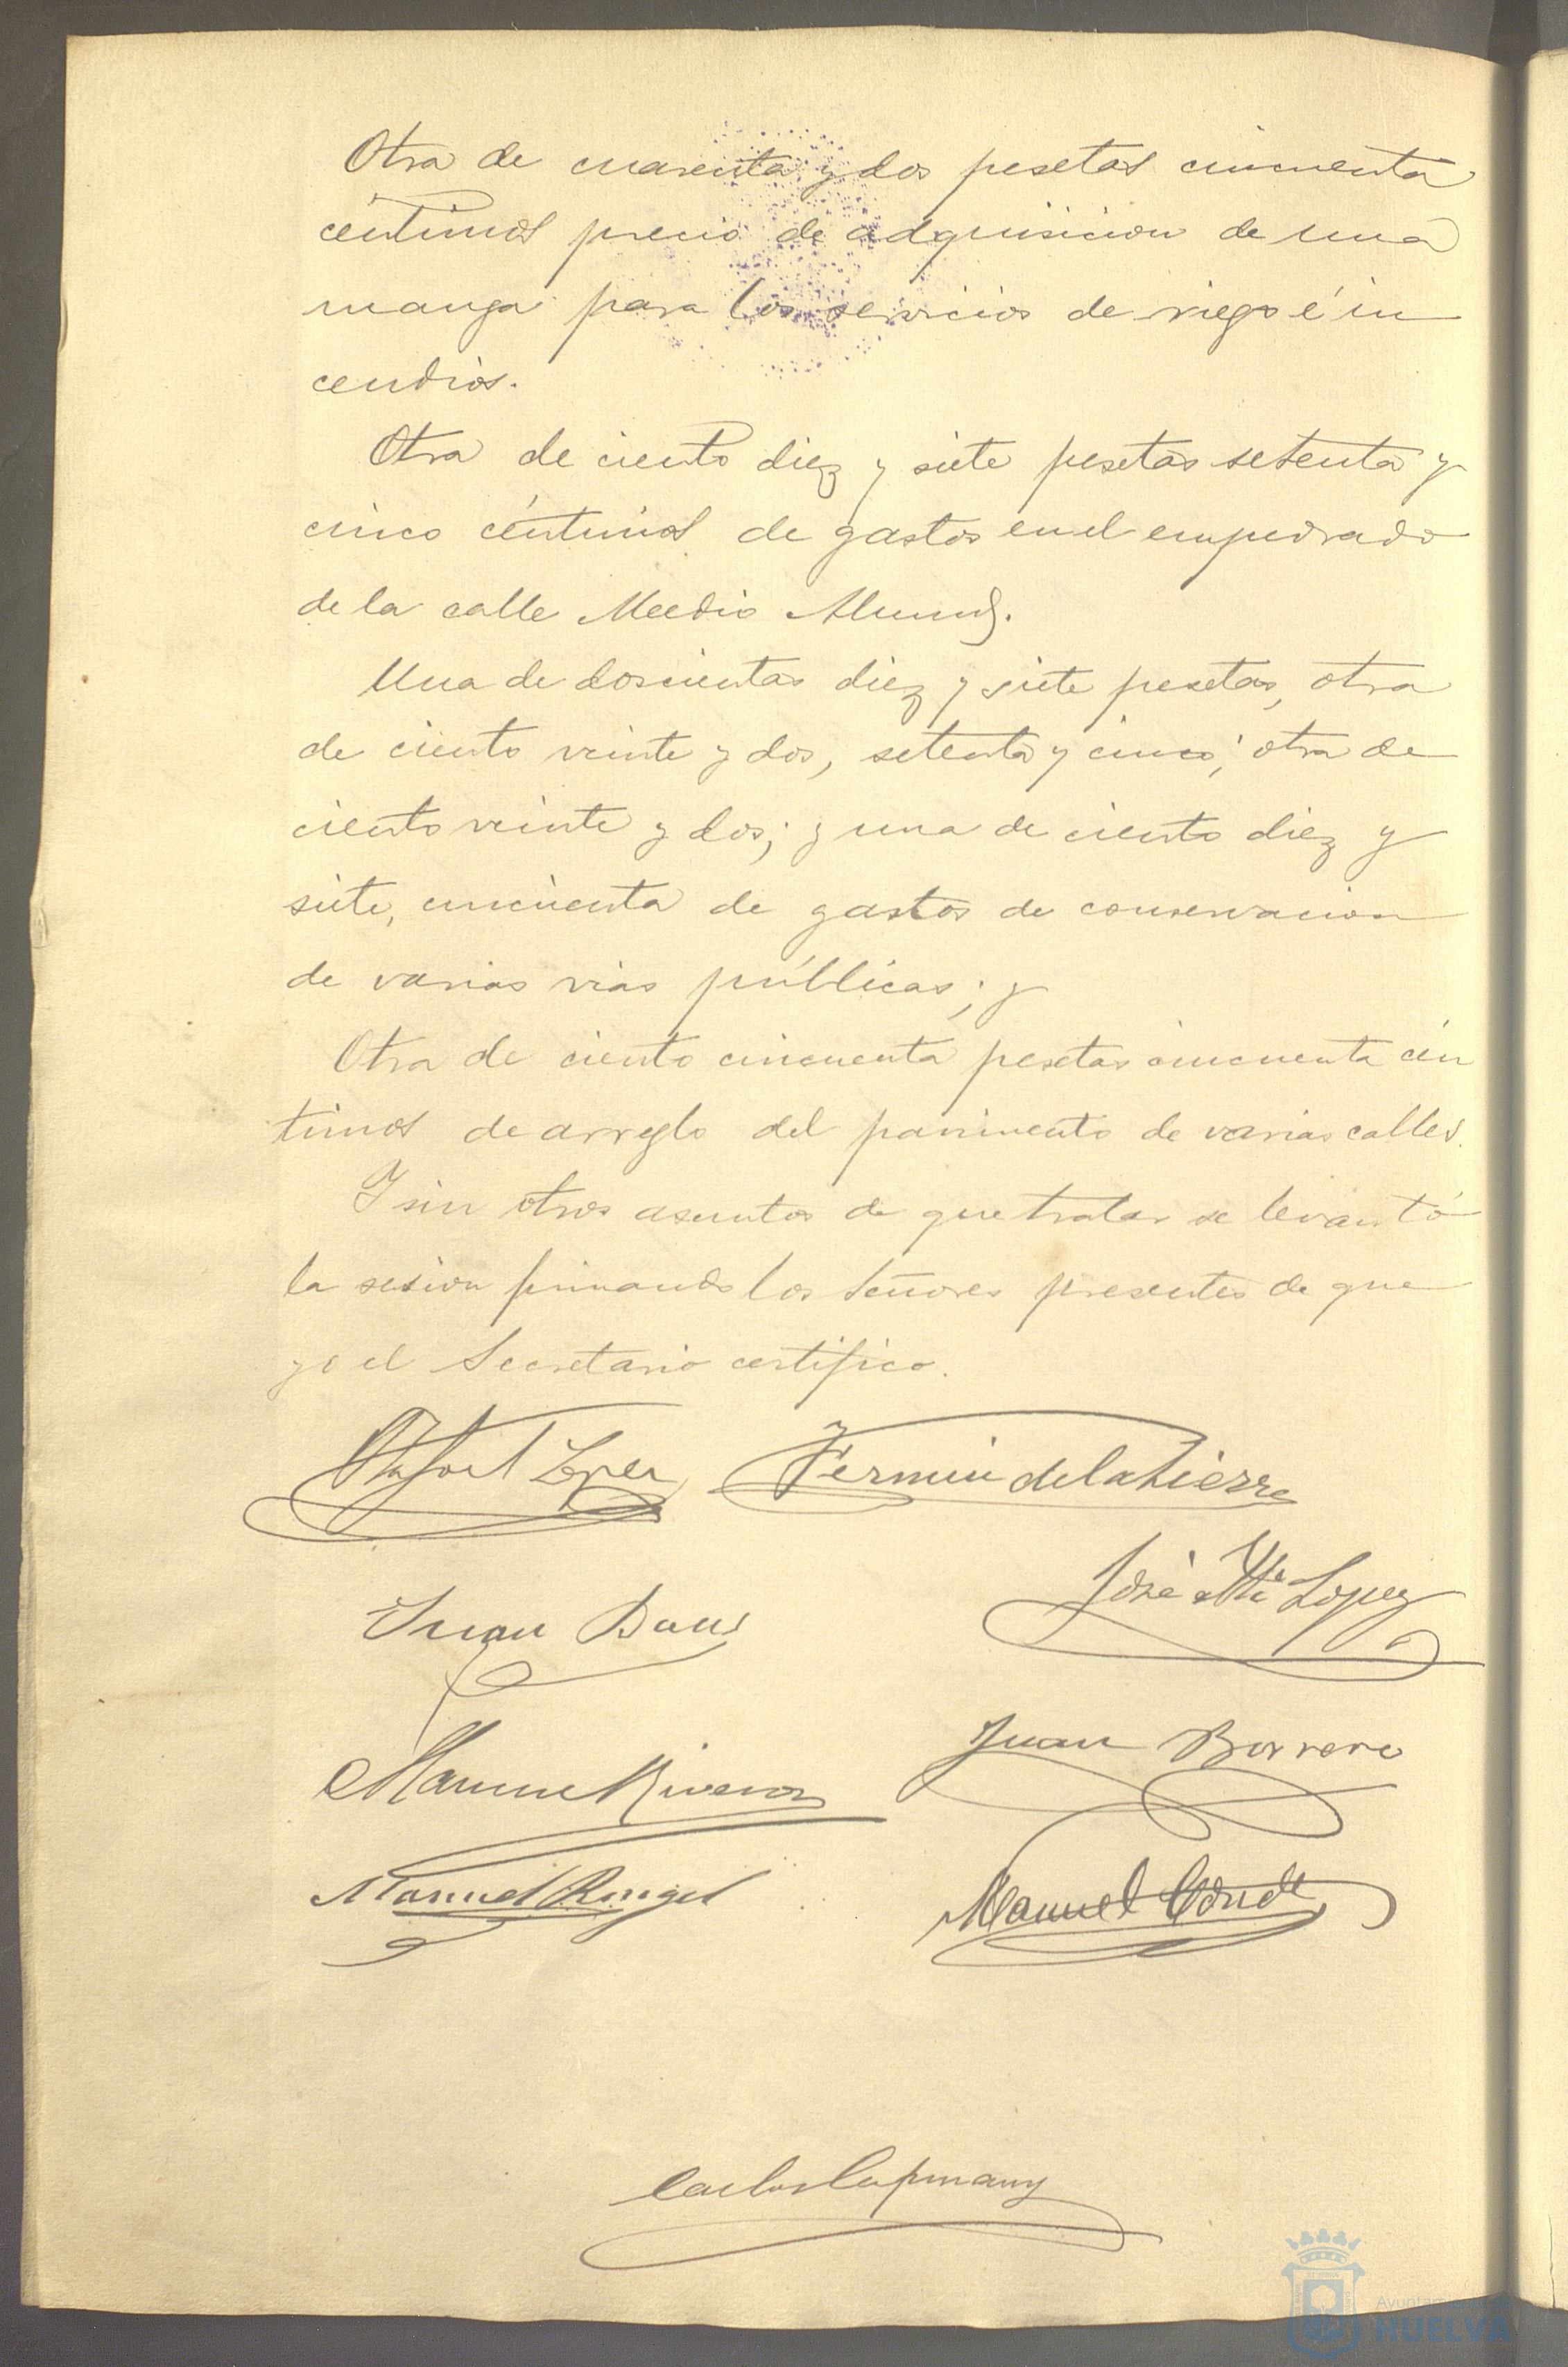 Otra de cuarenta y dos pesetas cincuenta
céntimos precio de adquisicion de una
manga para los servicios de riego é in
cendios.
Otra de ciento diez y siete pesetas setenta y
cinco céntimos de gastos en el empedrado
de la calle Medio Almud.
Una de doscientas diez y siete pesetas, otra
de ciento veinte y dos, setenta y cinco; otra de
ciento veinte y dos; y una de ciento diez y
siete, cincuenta de gastos de conservacion
de varias vias públicas; y
Otra de ciento cincuenta pesetas cincuenta cén
timos de arreglo del pavimento de varias calles.
Y sin otros asuntos de que tratar se levantó
la sesion firmando los Señores presentes de que
yo el Secretario certifico.
Rafael Lopez Fermin de la Sierra
José Mª Lopez
Juan
Juan Borrero
Manuel Rivera
Manuel Rengel Manuel Conde
Carlos Capmany
Ayuntamiento
HUELVA